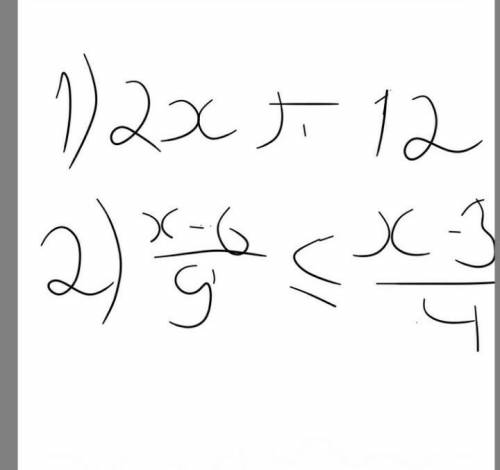 1) 2x 12
2) x-6/9 ≤ x-3/4